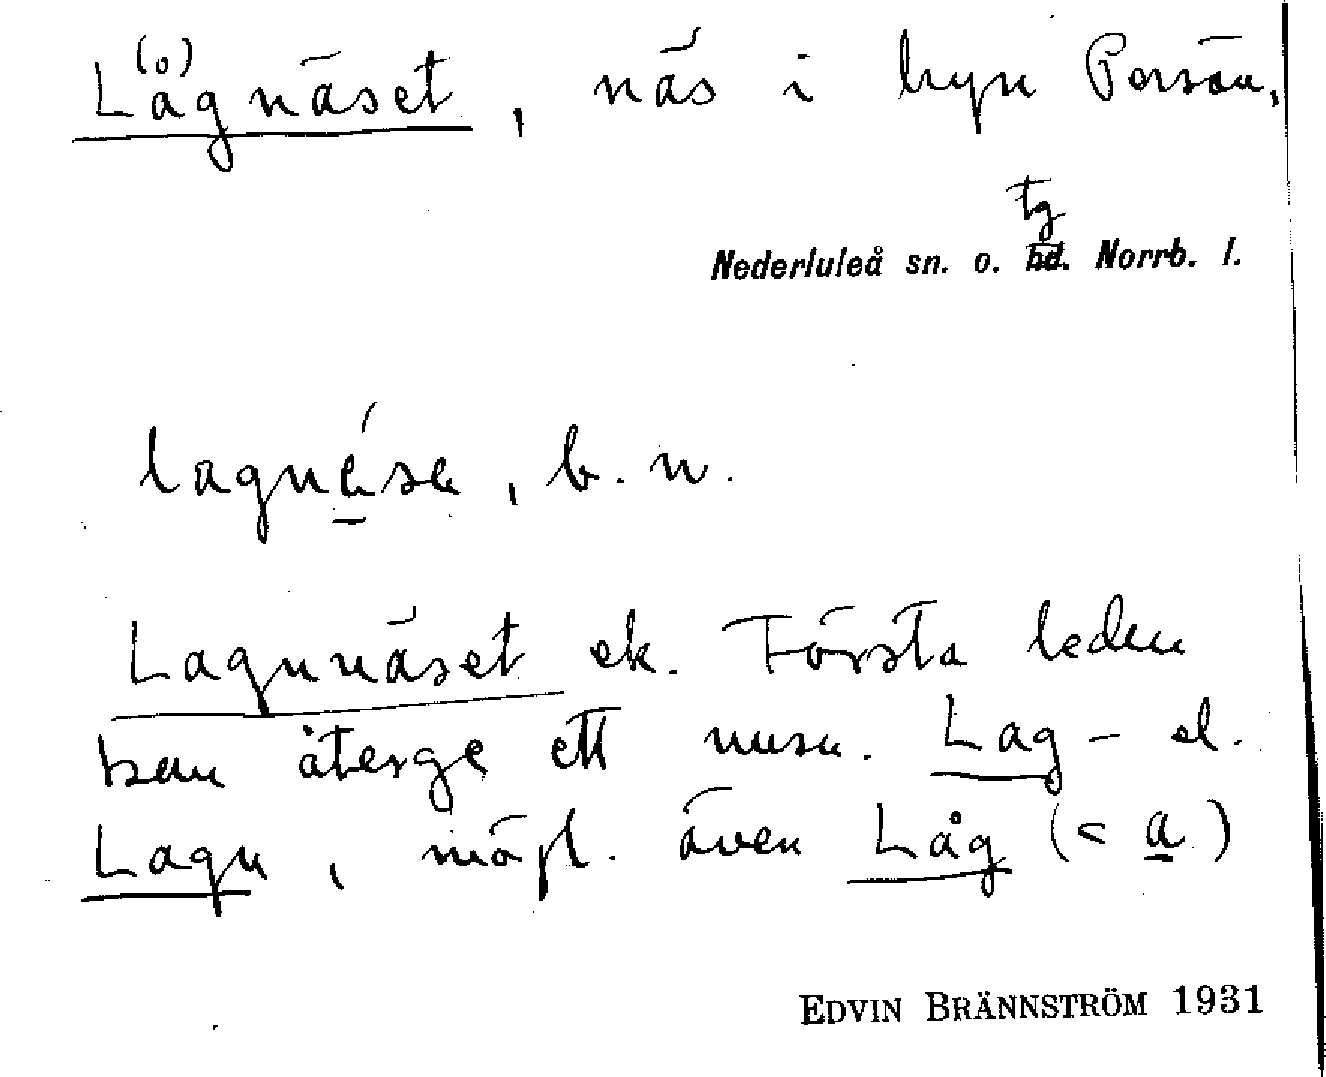 L(å)gnäset, näs i byn Persön,
tg
Nederluleå sn. o. hd. Norrb. l.
lagnésa, b. n.
Lagnnäset ek. Första leden
kan återge ett nusv. Lag- el.
Lagn, möjl. även Låg (< a)
EDVIN BRÄNNSTRÖM 1931